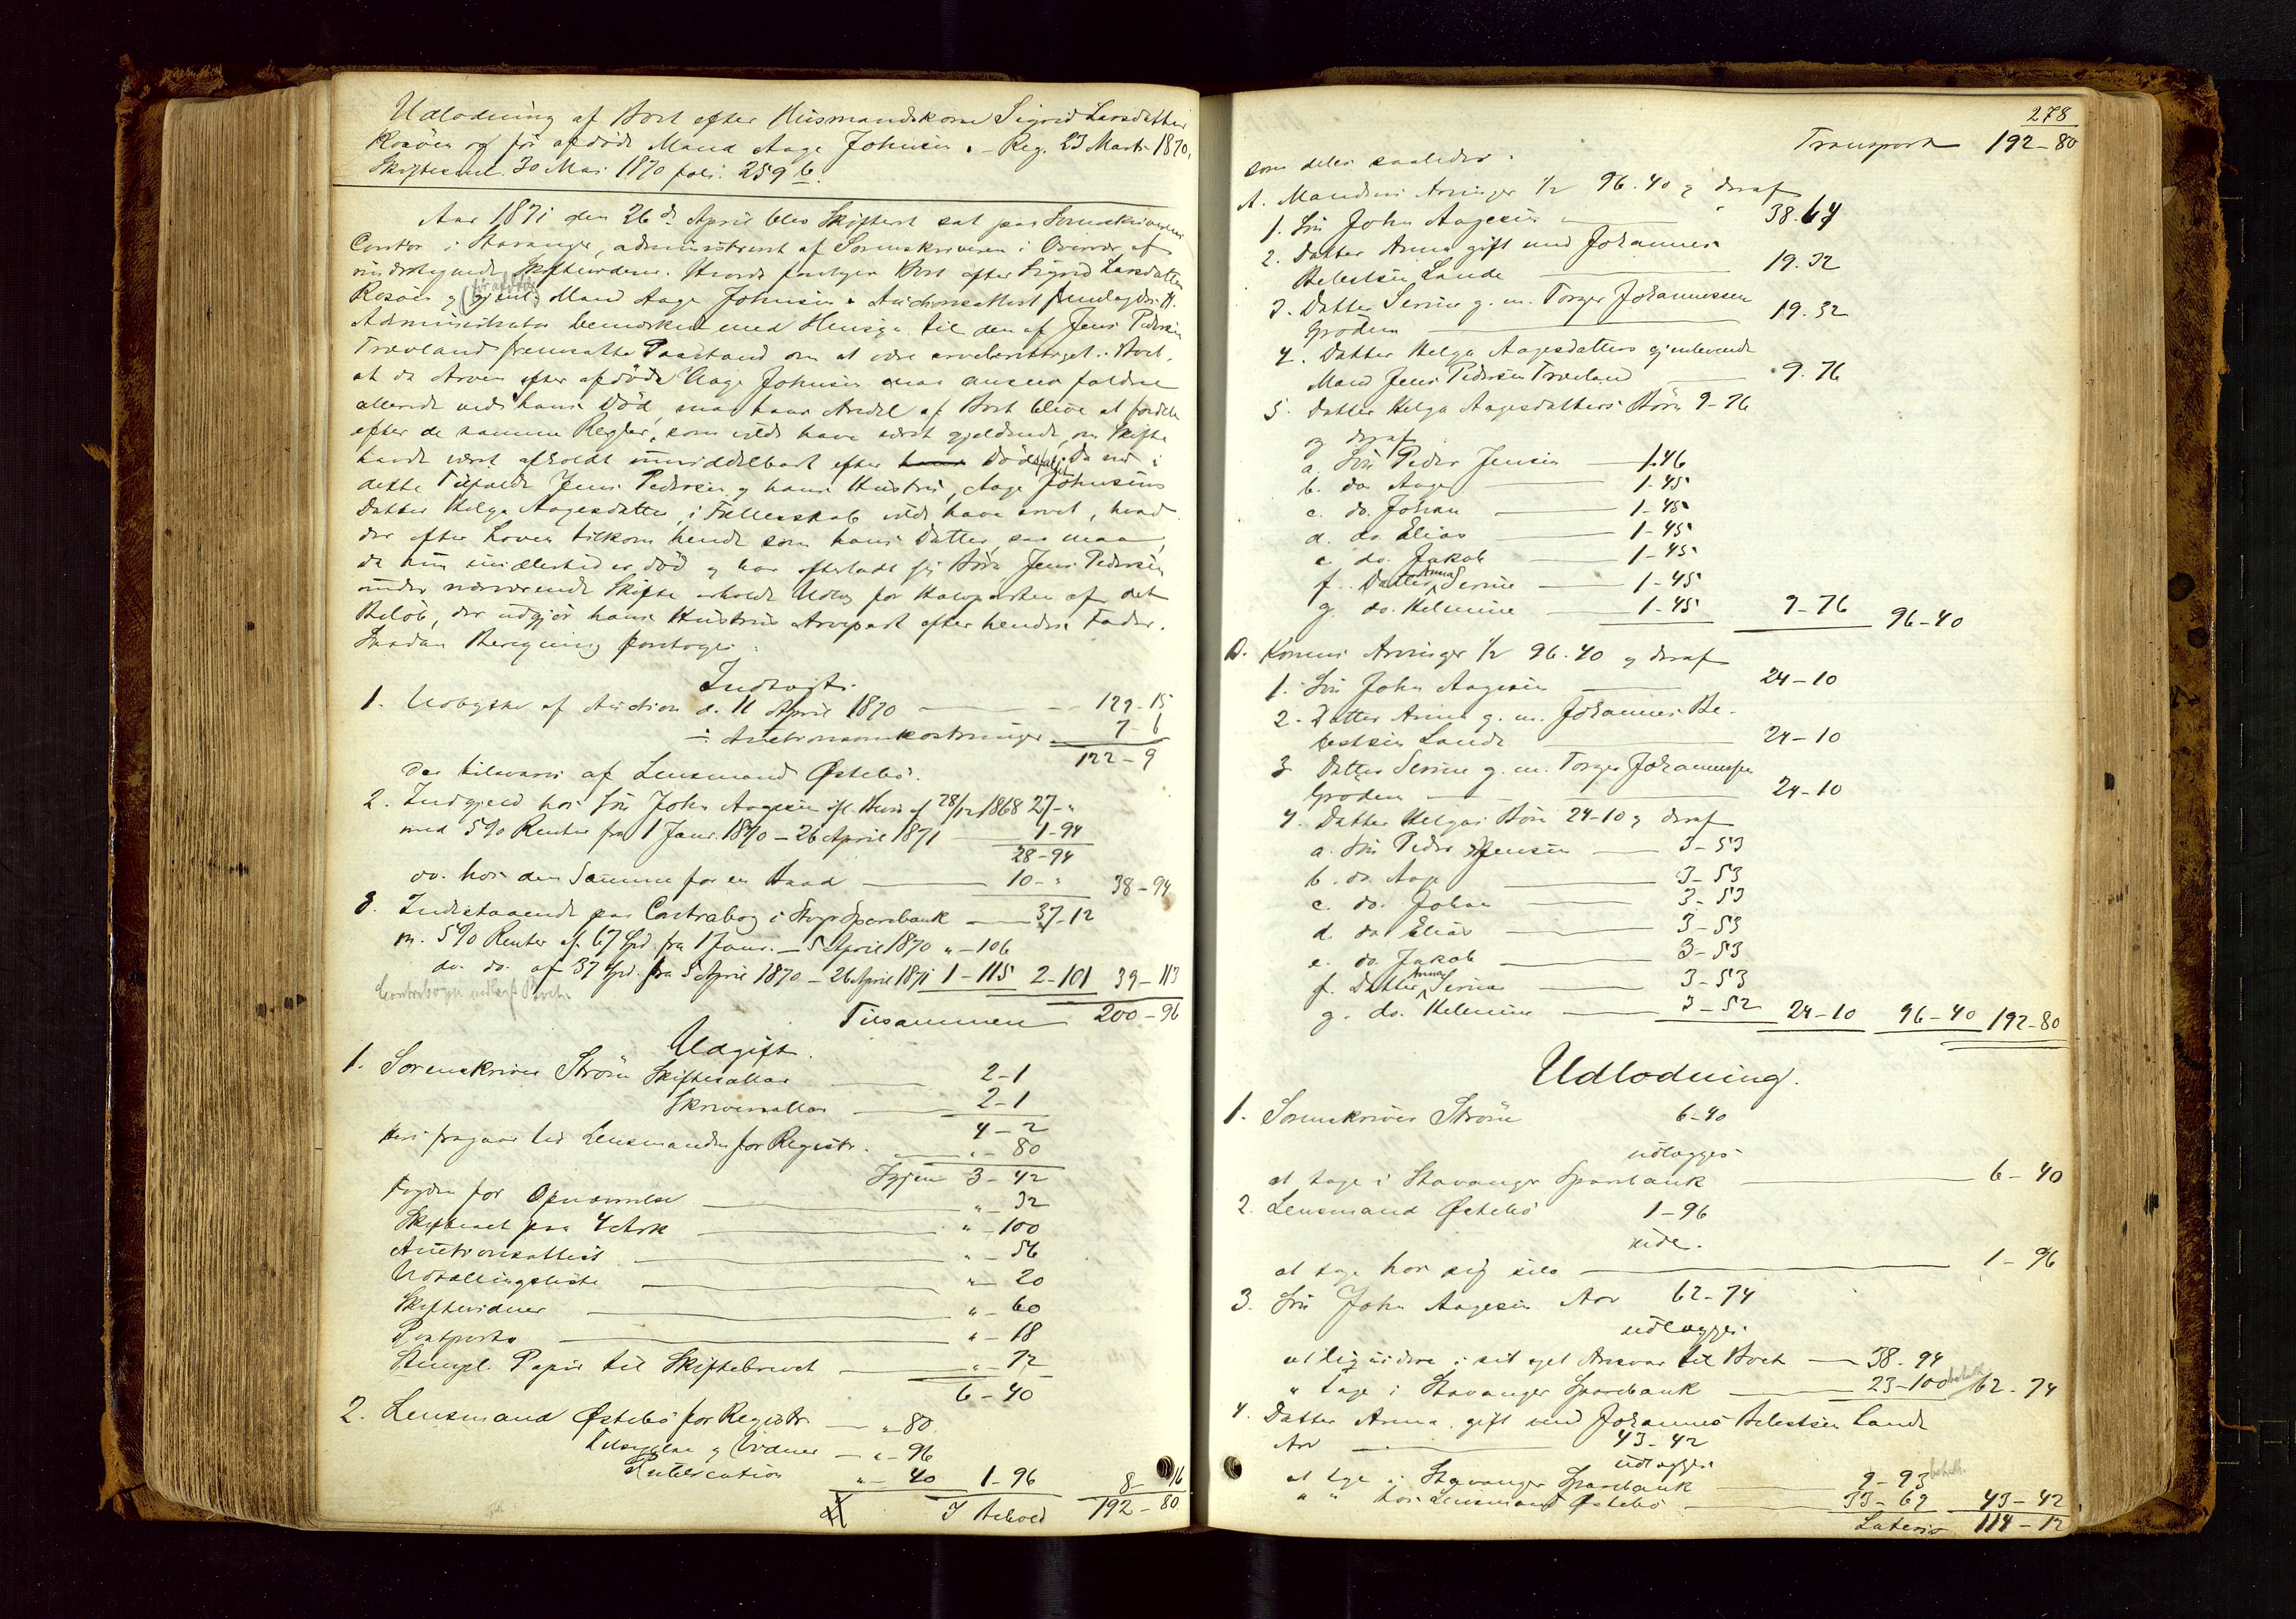 Udlodning af Boet efter Husmandskone Sigrid Larsdatter
Rosöen og før afdöde Mand Aage Johnsen. – Reg. 23 Marts 1870,
Skiftesaml. 30 Mai 1870 fol: 259 b.
Aar 1871 den 26de April blev Skifteret sat paa Sorenskriverens
Contor i Stavanger, administreret af Sorenskriveren i Overvær af
undertegnede Skiftevidner. Hvorda foretoges Boet efter Sigrid Larsdatter
Rosöen og (før afdöde) Mand Aage Johnsen. Auctionsattest fremlagdes
Administrator bemærked med Hensyn til den af Jens Pedersen
Træeland fremsatte Paastand om at være arveberettiget i Boet,
at da Arven efter afdöde Aage Johnsen maa ansees falden
allerede ved hans Död, maa hans Andel af Boet blive at fordele
efter de samme Regler, som vilde have været gjeldende, om Skifte
havde været afholdt umiddelbart efter Dödsfaldet. Da nu i
dette Tilfælde Jens Pedersen og hans Hustru, Aage Johnsens
Datter Helga Aagesdatter, i Fællesskab vilde have arvet, hvad
der efter Loven tilkom hende som hans Datter, saa maa,
da hun imidlertid er död og har efterladt sig Börn Jens Pedersen
under nærværende Skifte erholde Udlæg for Halvparten af det
Belöb, der udgjör hans Hustrus Arvepart efter hendes Fader.
Saadan Beregning foretoges:
Indtægt.
1. Udbytte af Auction d. 11 April 1870 129-15
÷ Auctionsomkostninger 7-6
122-9
der tilsvares af Lensmand Østebö.
2. Indgjeld hos Sön John Aagesen ifl. Bevis af 28/12 1868 27-"
med 5% Renter fra 1 Janr. 1870 – 26 April 1871 1-94
28-94
do. hos den Samme for en Baad 10-" 38-94
3. Indestaaende paa Contrabog i Stvgr Sparebank 37-12
m. 5% Renter af 67 Spd. fra 1 Janr. – 5 April 1870 "-106
do. do. af 37 Spd. fra 5 April 1870 – 26 April 1871 1-115 2-101 39-113
Contrabogen udlagt
Tilsammen 200-96
Udgift.
1. Sorenskriver Ström Skiftesallar 2-1
Skriversallar 2-1
4-2
Heri fragaar til Lensmanden for Registr. "-80
Igjen 3-42
Fogden for Opnævnelse "-32
Skiftebrevet paa 4 Ark "-100
Auctionsattest "-56
Udtællingsliste "-20
Skiftevidner "-60
Postporto "-18
Stempl. Papir til Skiftebrevet "-72
6-40
2. Lensmand Østebö for Registr. "-80
Tilsigelse og Vidner "-96
Publication "-40 1-96 8-16
I Behold 192-80.
278
Transport 192-80
som deles saaledes:
A. Mandens Arvinger 1/2 96.40 og deraf
1. Sön John Aagesen 38.64
2. Datter Anna gift med Johannes
Belestsen Lande 19.32
3. Datter Serine g. m. Torger Johannessen
Grödem 19.32
4. Datter Helga Aagesdatters gjenlevende
Mand Jens Pedersen Træeland 9.76
5. Datter Helga Aagesdatters Börn 9-76
og deraf
a. Sön Peder Jensen 1.46
b. do Aage 1-45
c. do. Johan 1-45
d. do. Elias 1-45
e. do. Jakob 1-45
f. Datter Anna Serine 1-45
g. do. Helmine 1-45 9-76 96-40
B. Konens Arvinger 1/2 96.40 og deraf
1. Sön John Aagesen 24-10
2. Datter Anna g. m. Johannes Be-
lestsen Lande 24-10
3. Datter Serine g. m. Torger Johannessen
Grödem 24-10
4. Datter Helgas Börn 24-10 og deraf
a. Sön Peder Jensen 3-53
b. do. Aage 3-53
c. do. Johan 3-53
d. do Elias 3-53
e. do. Jakob 3-53
f. Datter Anna Serine 3-53
g. do. Helmine 3-52 24-10 96-40 192-80
Udlodning.
1. Sorenskriver Ström 6-40
udlægges
at tage i Stavanger Sparebank 6-40
2. Lensmand Østebö 1-96
udl.
at tage hos sig selv 1-96
3. Sön John Aagesen Arv 62-74
udlægges
at liqvidere i sit eget Ansvar til Boet 38-94
" tage i Stavanger Sparebank 23-100 betalt 62-74
4. Datter Anna gift med Johannes Belestsen Lande
Arv 43-42
udlægges
at tage i Stavanger Sparebank 9-93 betalt
" " hos Lensmand Østebö 33-69 43-42
Lateris 114-12